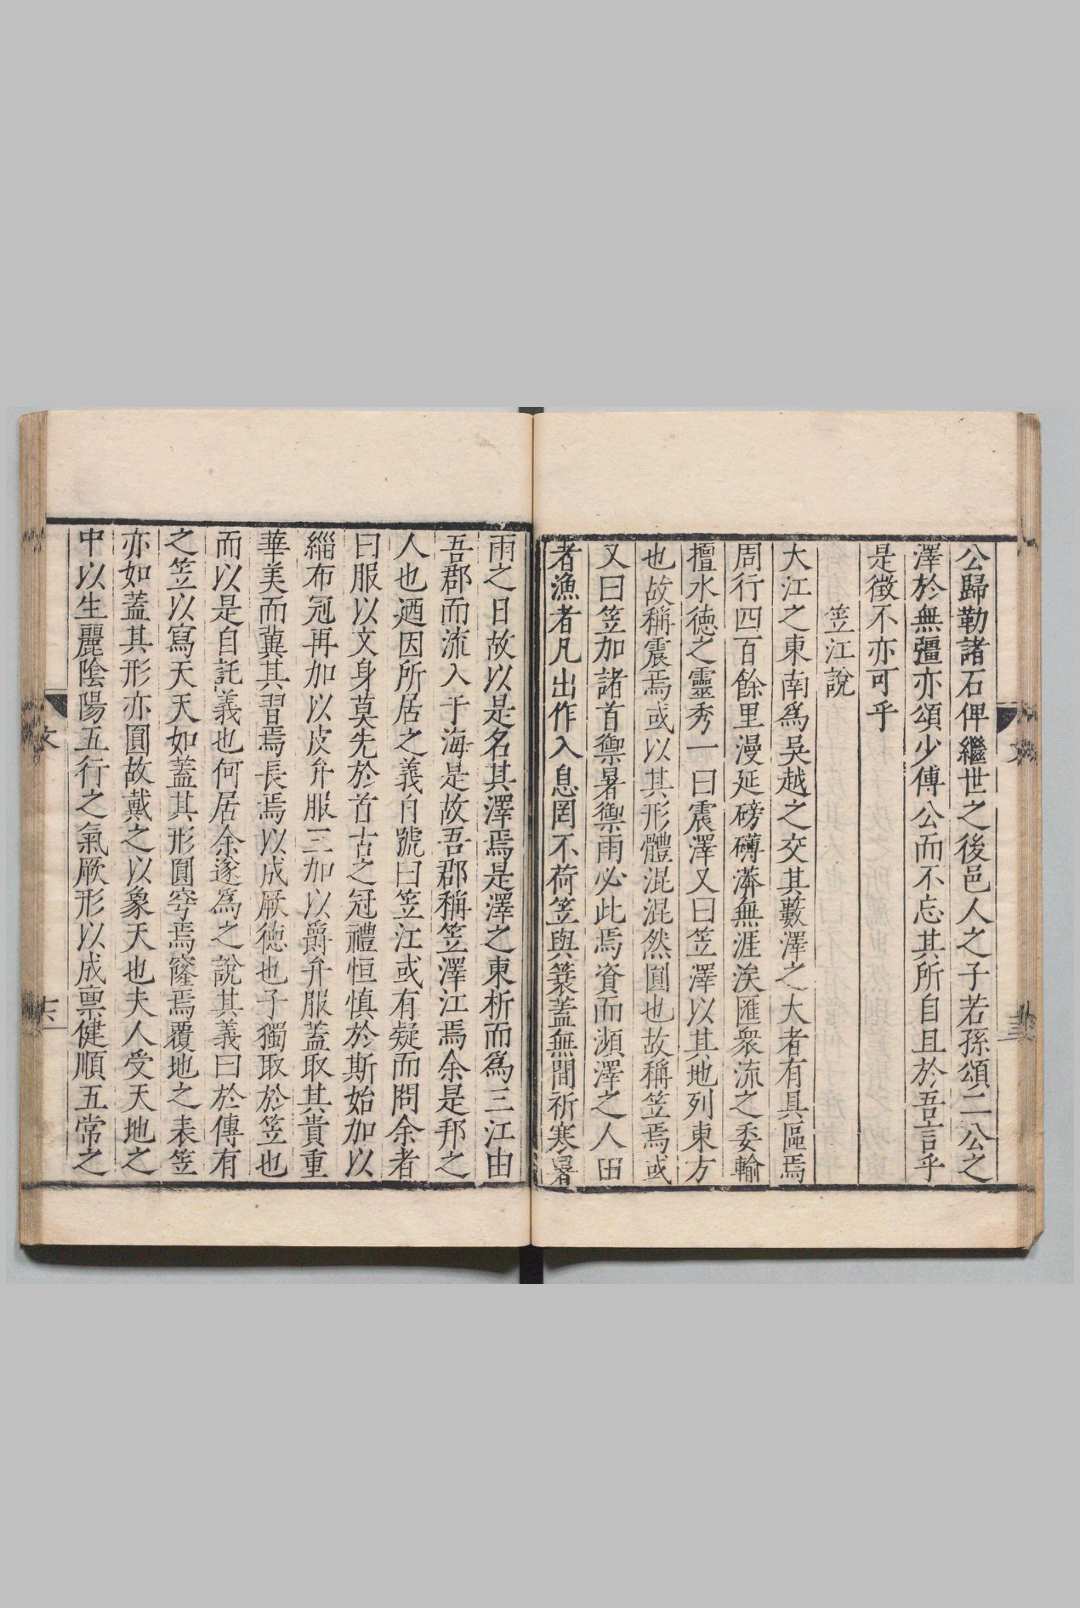 公歸勒諸石俾繼世之後邑人之子若孫頌二公之
澤於無彊亦頌少傅公而不忘其所自且於吾言乎
是徵不亦可乎
笠江說
大江之東南爲吳越之交其藪澤之大者有具區焉
周行四百餘里漫延磅礴漭無涯涘匯衆流之委輸
擅水德之靈秀一曰震澤又曰笠澤以其地列東方
也故稱震焉或以其形體混混然圓也故稱笠焉或
又曰笠加諸首禦暑禦雨必此焉資而瀕澤之人田
者漁者凡出作入息罔不荷笠與簑蓋無間祈寒暑
雨之日故以是名其澤焉是澤之東析而爲三江由
吾郡而流入于海是故吾郡稱笠澤江焉余是邦之
人也迺因所居之義自號曰笠江或有疑而問余者
曰服以文身莫先於首古之冠禮恒慎於斯始加以
緇布冠再加以皮弁服三加以爵弁服蓋取其貴重
華美而冀其習焉長焉以成厥德也子獨取於笠也
而以是自託義也何居余遂爲之說其義曰於傳有
之笠以寫天天如蓋其形圓穹焉窿焉覆地之表笠
亦如蓋其形亦圓故戴之以象天也夫人受天地之
中以生麗陰陽五行之氣厥形以成禀健順五常之
文